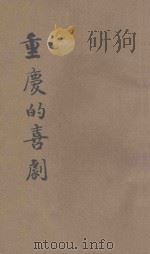 重慶的喜劇
研狗
mtoou.info
mtoou.info